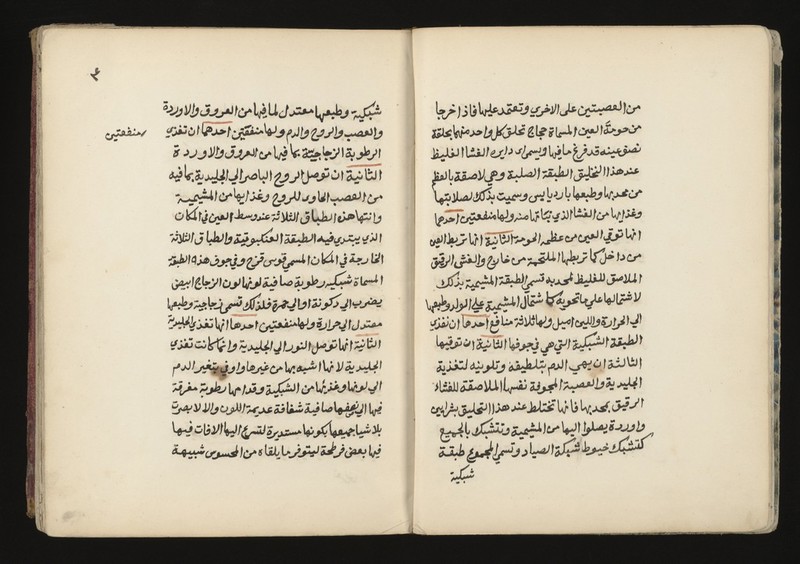 من العصبتين على الاخرى وتعتمد عليها فاذا خرجا
من حومة العين المسماة حجاج تحلق كل واحد منهما بحلقة
نصف عينه قد فرغ ما فيها ويسمى دايره الغشا الغليظ
عند هذا التحليق الطبقة الصلبة وهي لاصقة بالعظم
من محدبها وطبعها بارد يابس وسميت بذلك لصلابتها
وغذايها من الغشا الذي نباتها منه ولها منفعتين احدها
انها توقي العين من عظم الحومة الثانية انها تربط العين
من داخل كما تربطها الملتحمة من خارج والغشى الرقيق
الملاصق للغليظ بمحدبه تسمى الطبقة المشيمية بذلك
لاشتمالها على ما تحويه كما شتمال المشيمة على الولد وطبعها
الى الحرارة واللين اميل ولها ثلاثة منافع احدها ان تغذي
الطبقة الشبكية التي هي في جوفها الثانية ان توقيها
الثالثة ان يهمى الدم بتلطيفه وتلوينه لتغذية
الجليدية والعصبة المجوفة نفسها الملاصقة للغشاء
الرقيق بمحدبها فانها تختلط عند هذا التحليق بشرايين
واوردة يصلوا اليها من المشيمية وتتشبك بالجميع
كتشبك خيوط شبكة الصياد وتسمى المجموع طبقة
شبكية
٤
شبكية وطبعها معتدل لما فيها من العروق والاوردة
والعصب والروح والدم ولها منفعتين احدهما ان تغذي
منفعتين
الرطوبة الزجاجية بما فيها من العروق والاوردة
الثانية ان توصل الروح الباصر الى الجليدية بما فيه
من العصب الحاوى للروح وغذايها من المشيمية
وانتها هذه الطباق الثلاثة عند وسط العين في المكان
الذي يبتدي فيه الطبقة العنكبوتية والطباق الثلاثة
الخارجة في المكان المسمى قوس قزح وفي جوف هذه الطبقة
المسماة شبكيه رطوبة صافية لونها لون الزجاج ابيض
يضرب الى دكونة او الى حمرة فلذلك تسمى زجاجية وطبعها
معتدل الى حرارة ولها منفعتين احدها انها تغذي الجليدية
الثانية انها توصل النور الى الجليدية وانما كانت تغذي
الجليدية لانها اشبه بها من غيرها واوفى بتغير الدم
الى لونها وغذيها من الشبكية وقدامها رطوبة مغرقة
فيها الى نصفها صافية شفافة عديمة اللون والا لا بصرت
بلا شيا جميعها بكونها مستديرة لتسرع اليها الافات فيها
فيها بعض فرطحة ليتوفر ما يلقاه من المحسوس شبيهة